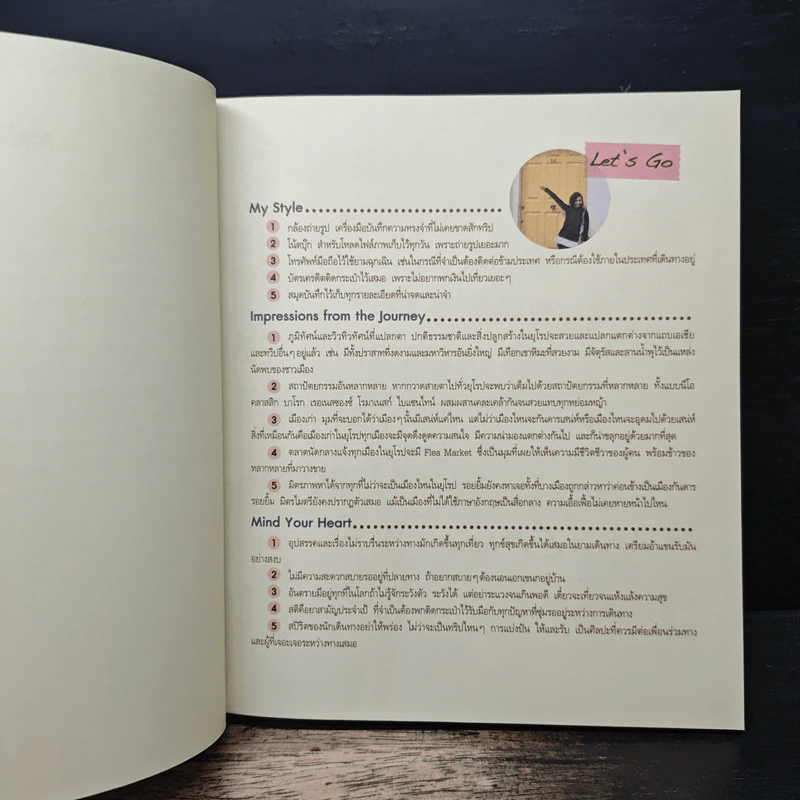 Let's Go
My Style
1 กล้องถ่ายรูป เครื่องมือบันทึกความทรงจำที่ไม่เคยขาดสักทริป
2 โน้ตบุ๊ก สำหรับโหลดไฟล์ภาพเก็บไว้ทุกวัน เพราะถ่ายรูปเยอะมาก
3 โทรศัพท์มือถือไว้ใช้ยามฉุกเฉิน เช่นในกรณีที่จำเป็นต้องติดต่อข้ามประเทศ หรือกรณีต้องใช้ภายในประเทศที่เดินทางอยู่
4 บัตรเครดิตติดกระเป๋าไว้เสมอ เพราะไม่อยากพกเงินไปเที่ยวเยอะๆ
5 สมุดบันทึกไว้เก็บทุกรายละเอียดที่น่าจดและน่าจำ
Impressions from the Journey
1 ภูมิทัศน์และวิวทิวทัศน์ที่แปลกตา ปกติธรรมชาติและสิ่งปลูกสร้างในยุโรปจะสวยและแปลกแตกต่างจากแถบเอเชีย
และทวีปอื่นๆ อยู่แล้ว เช่น มีทั้งปราสาทที่งดงามและมหาวิหารอันยิ่งใหญ่ มีเทือกเขาหิมะที่สวยงาม มีจัตุรัสและลานน้ำพุไว้เป็นแหล่ง
นัดพบของชาวเมือง
2 สถาปัตยกรรมอันหลากหลาย หากกวาดสายตาไปทั่วยุโรปจะพบว่าเต็มไปด้วยสถาปัตยกรรมที่หลากหลาย ทั้งแบบนีโอ
คลาสสิก บาโรก เรอเนสซองซ์ โรมาเนสก์ ไบแซนไทน์ ผสมผสานคละเคล้ากันจนสวยแทบทุกหย่อมหญ้า
3 เมืองเก่า มุมที่จะบอกได้ว่าเมืองๆ นั้นมีเสน่ห์แค่ไหน แต่ไม่ว่าเมืองไหนจะกันดารเสน่ห์หรือเมืองไหนจะอุดมไปด้วยเสน่ห์
สิ่งที่เหมือนกันคือเมืองเก่าในยุโรปทุกเมืองจะมีจุดดึงดูดความสนใจ มีความน่ามองแตกต่างกันไป และก็น่าขลุกอยู่ด้วยมากที่สุด
4 ตลาดนัดกลางแจ้งทุกเมืองในยุโรปจะมี Flea Market ซึ่งเป็นมุมที่เผยให้เห็นความมีชีวิตชีวาของผู้คน พร้อมข้าวของ
หลากหลายที่มาวางขาย
5 มิตรภาพหาได้จากทุกที่ไม่ว่าจะเป็นเมืองไหนในยุโรป รอยยิ้มยังคงหาเจอทั้งที่บางเมืองถูกกล่าวหาว่าค่อนข้างเป็นเมืองกันดาร
รอยยิ้ม มิตรไมตรียังคงปรากฏตัวเสมอ แม้เป็นเมืองที่ไม่ได้ใช้ภาษาอังกฤษเป็นสื่อกลาง ความเอื้อเฟื้อไม่เคยหายหน้าไปไหน
Mind Your Heart
1 อุปสรรคและเรื่องไม่ราบรื่นระหว่างทางมักเกิดขึ้นทุกเที่ยว ทุกข์สุขเกิดขึ้นได้เสมอในยามเดินทาง เตรียมอ้าแขนรับมัน
อย่างสงบ
2 ไม่มีความสะดวกสบายรออยู่ที่ปลายทาง ถ้าอยากสบายๆ ต้องนอนเอกเขนกอยู่บ้าน
3 อันตรายมีอยู่ทุกที่ในโลกถ้าไม่รู้จักระวังตัว ระวังได้ แต่อย่าระแวงจนเกินพอดี เดี๋ยวจะเที่ยวจนแห้งแล้งความสุข
4 สติคือยาสามัญประจำเป้ ที่จำเป็นต้องพกติดกระเป๋าไว้รับมือกับทุกปัญหาที่ซุ่มรออยู่ระหว่างการเดินทาง
5 สปิริตของนักเดินทางอย่าให้พร่อง ไม่ว่าจะเป็นทริปไหนๆ การแบ่งปัน ให้และรับ เป็นศิลปะที่ควรมีต่อเพื่อนร่วมทาง
และผู้ที่เจอะเจอระหว่างทางเสมอ